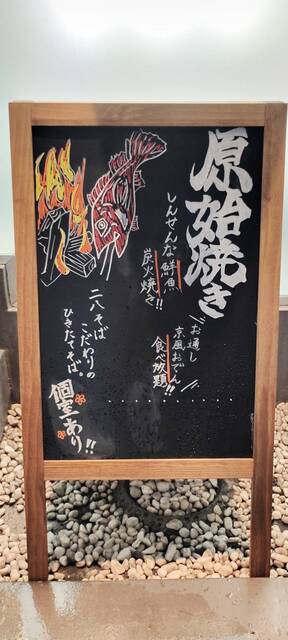 原始焼き
しんせんな鮮魚
炭火焼き!!
お通し
京風おでん
食べ放題!!
二八そば
こだわりの
ひきたてそば。
個室あり!!